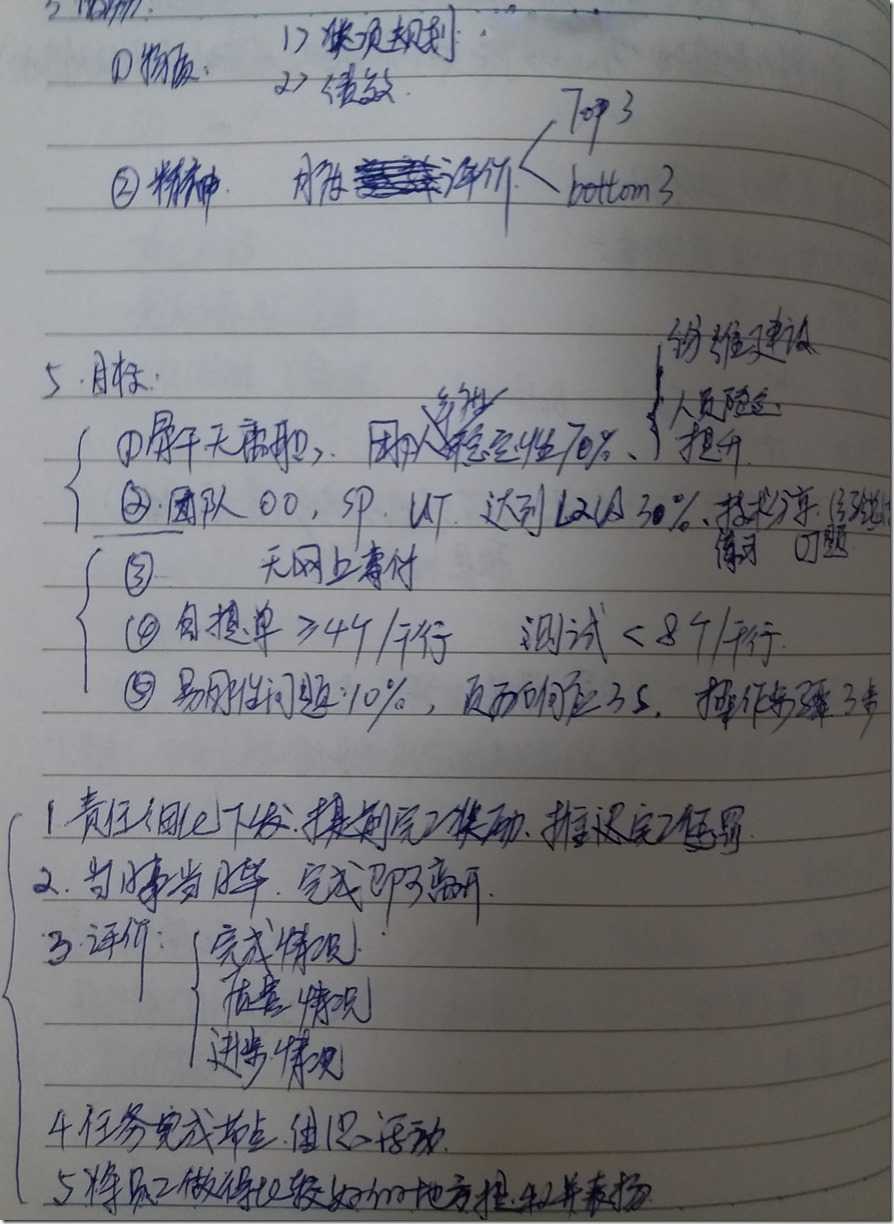 ①物质: 1> 奖项规划.
2> 绩效.
②精神. 月度 评价. Top 3
bottom 3
5.目标:
梯队建设
人员稳定.
提升
①骨干无离职, 团队 稳定性70%、
②.团队 OO, SP. UT. 达到 L2级 30%、技术分享、
练习 问题
③ 无网上事件
④ 自提单 ≥4个/千行 测试 < 8个/千行.
⑤ 易用性问题:10%, 页面响应3s, 操作步骤3步
1.责任 下发.提前完工奖励、推迟完工惩罚.
2.当日事当日毕. 完成即可离开.
3.评价: 完成情况.
质量情况
进步情况
4 任务完成节点. 活动.
5 将员工做得比较好的地方提 并表扬